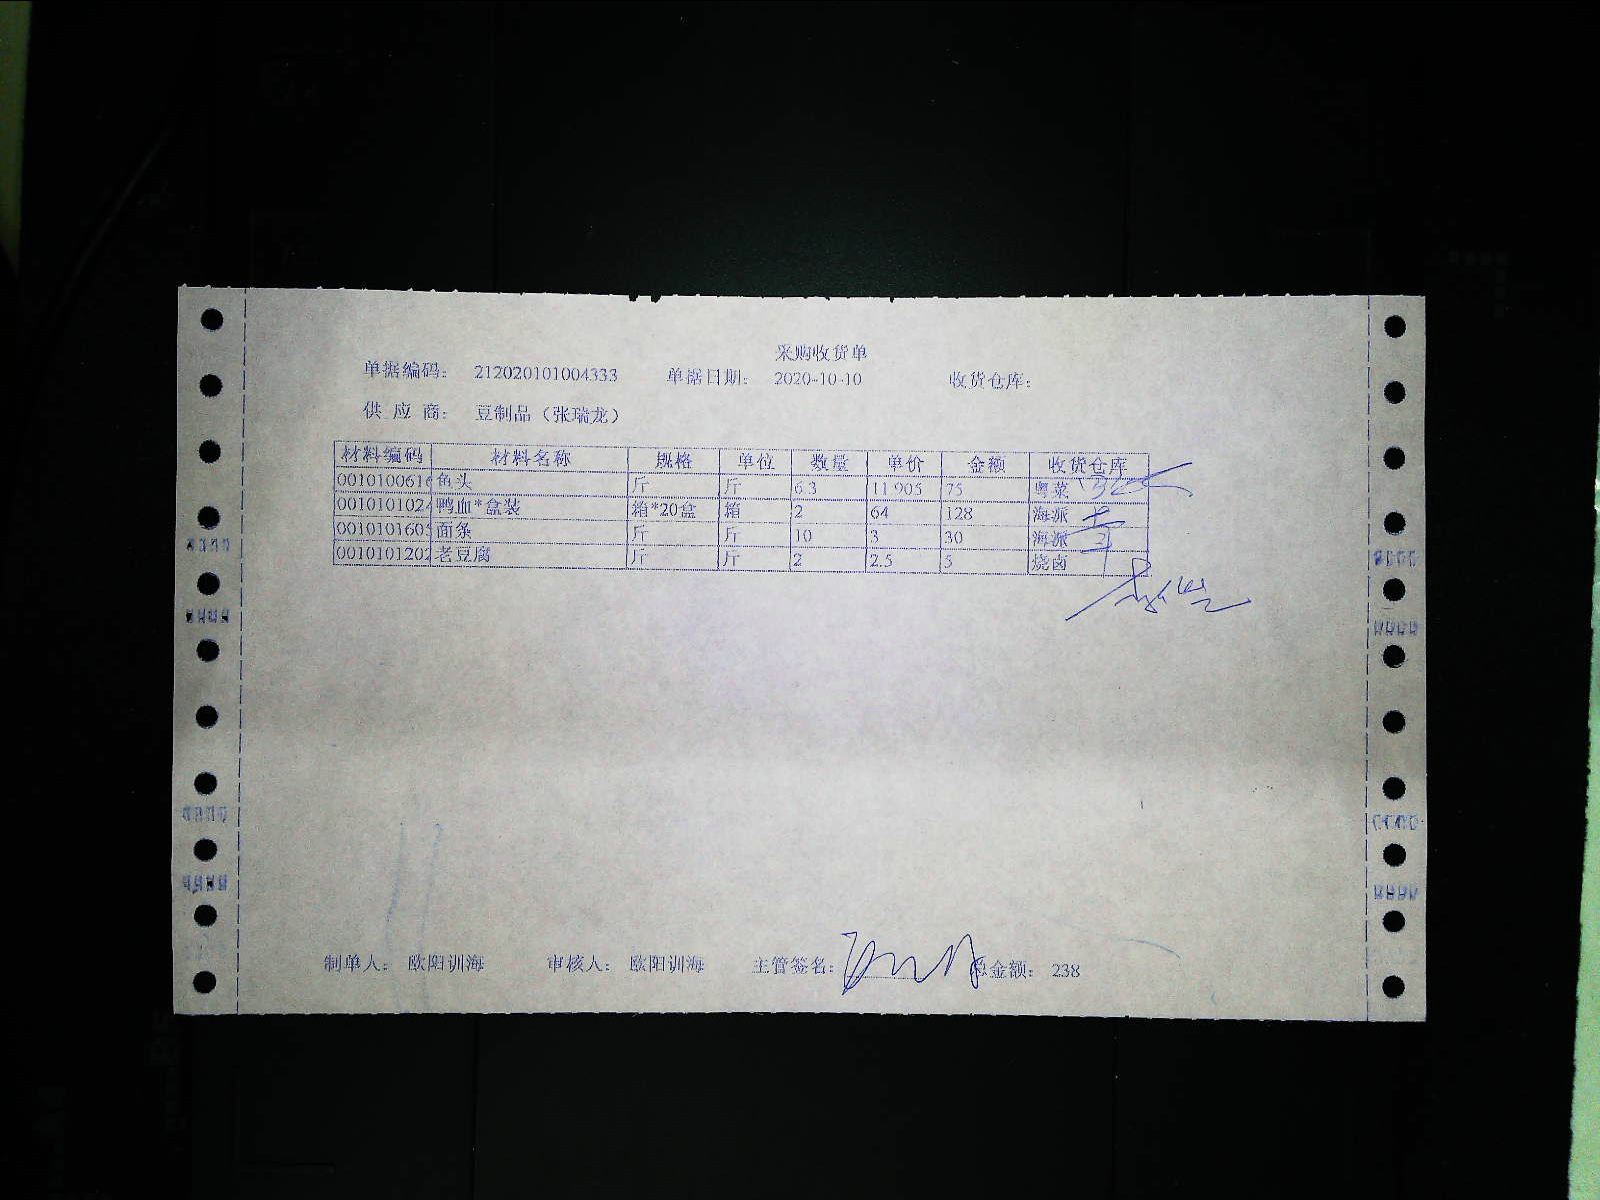 采购收货单
单据编码： 212020101004333 单据日期： 2020-10-10 收货仓库：
供 应 商： 豆制品（张瑞龙）
材料编码 材料名称 规格 单位 数量 单价 金额 收货仓库
001010061 鱼头 斤 斤 6.3 11.905 75 粤菜
001010102 鸭血*盒装 箱*20盒 箱 2 64 128 海派
001010160 面条 斤 斤 10 3 30 海派
001010120 老豆腐 斤 斤 2 2.5 5 烧卤
制单人： 欧阳训海 审核人： 欧阳训海 主管签名： 总金额： 238